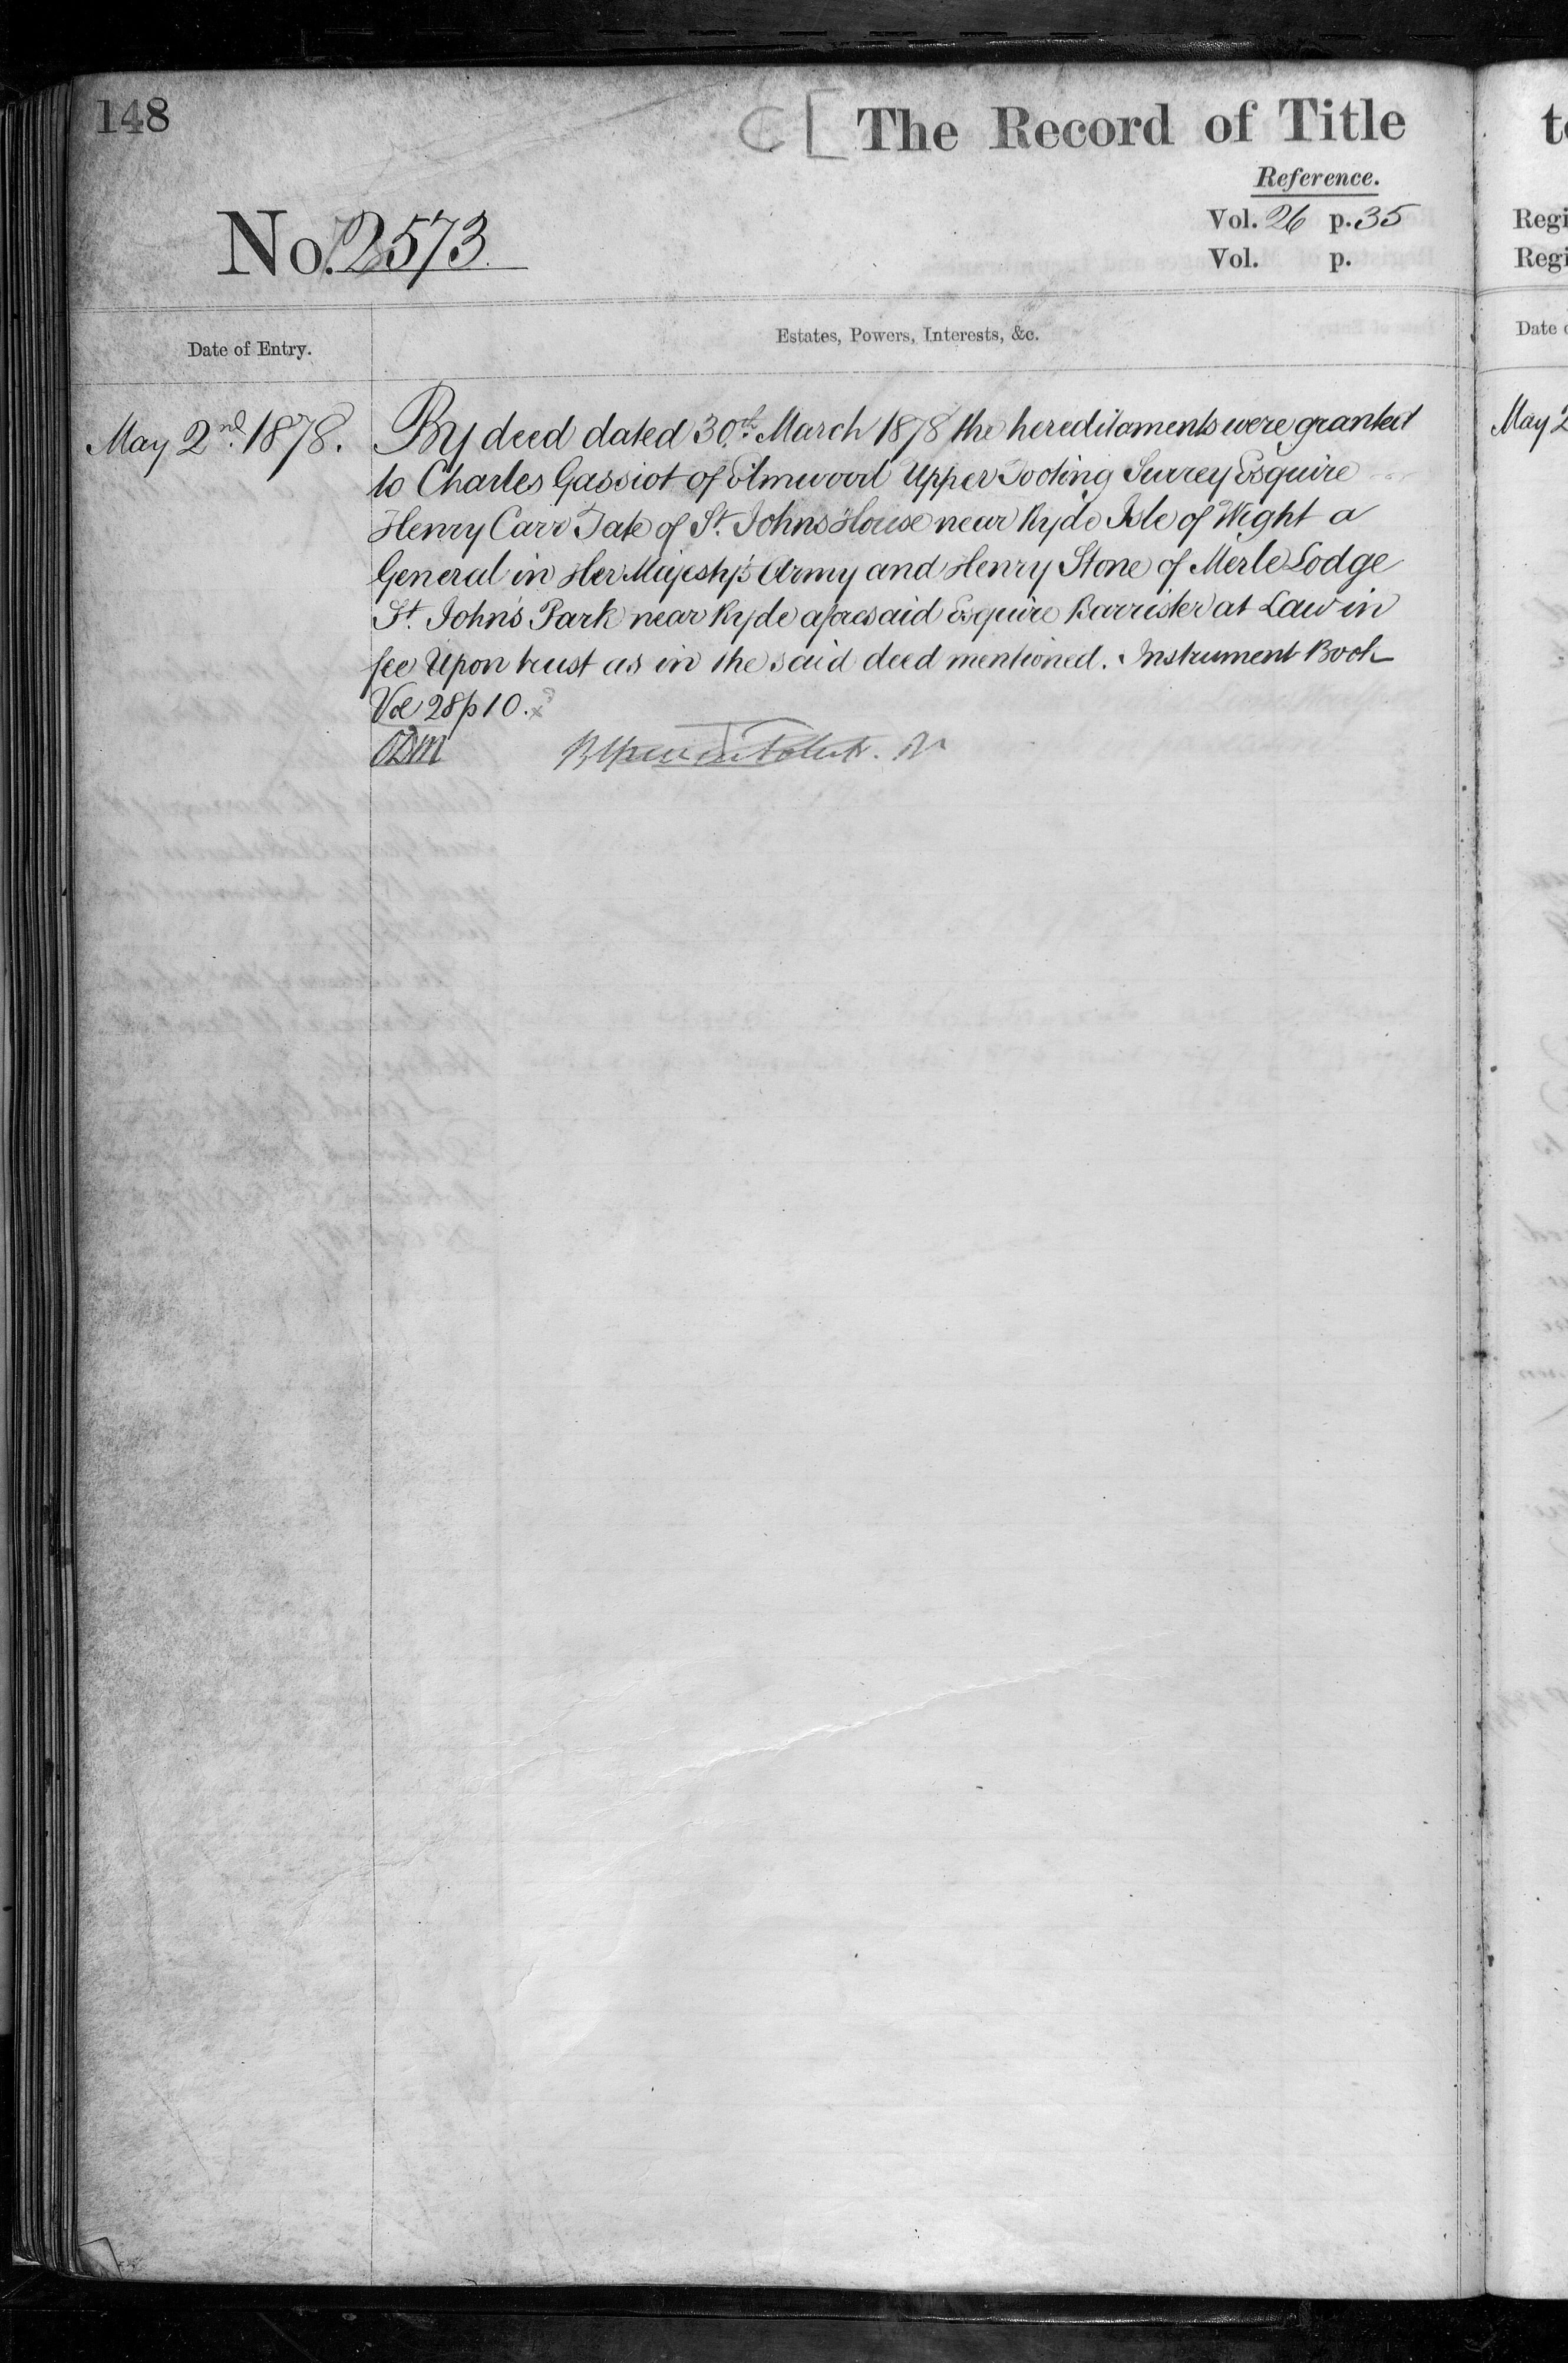 148
C [ The Record of Title
Reference.
Vol. 26 p. 35
Vol. p.
No. 2573.
Date of Entry.
Estates, Powers, Interests, &c.
May 2nd. 1878.
By deed dated 30th. March 1878 the hereditaments were granted
to Charles Gassiot of Elmwood Upper Tooting Surrey Esquire
Henry Carr Tate of St. Johns House near Ryde Isle of Wight a
General in Her Majesty's Army and Henry Stone of Merle Lodge
St. John's Park near Ryde aforesaid Esquire Barrister at Law in
fee Upon trust as in the said deed mentioned. Instrument Book
Vol 28 p 10. x
t
Regi
Regi
Date o
May 2